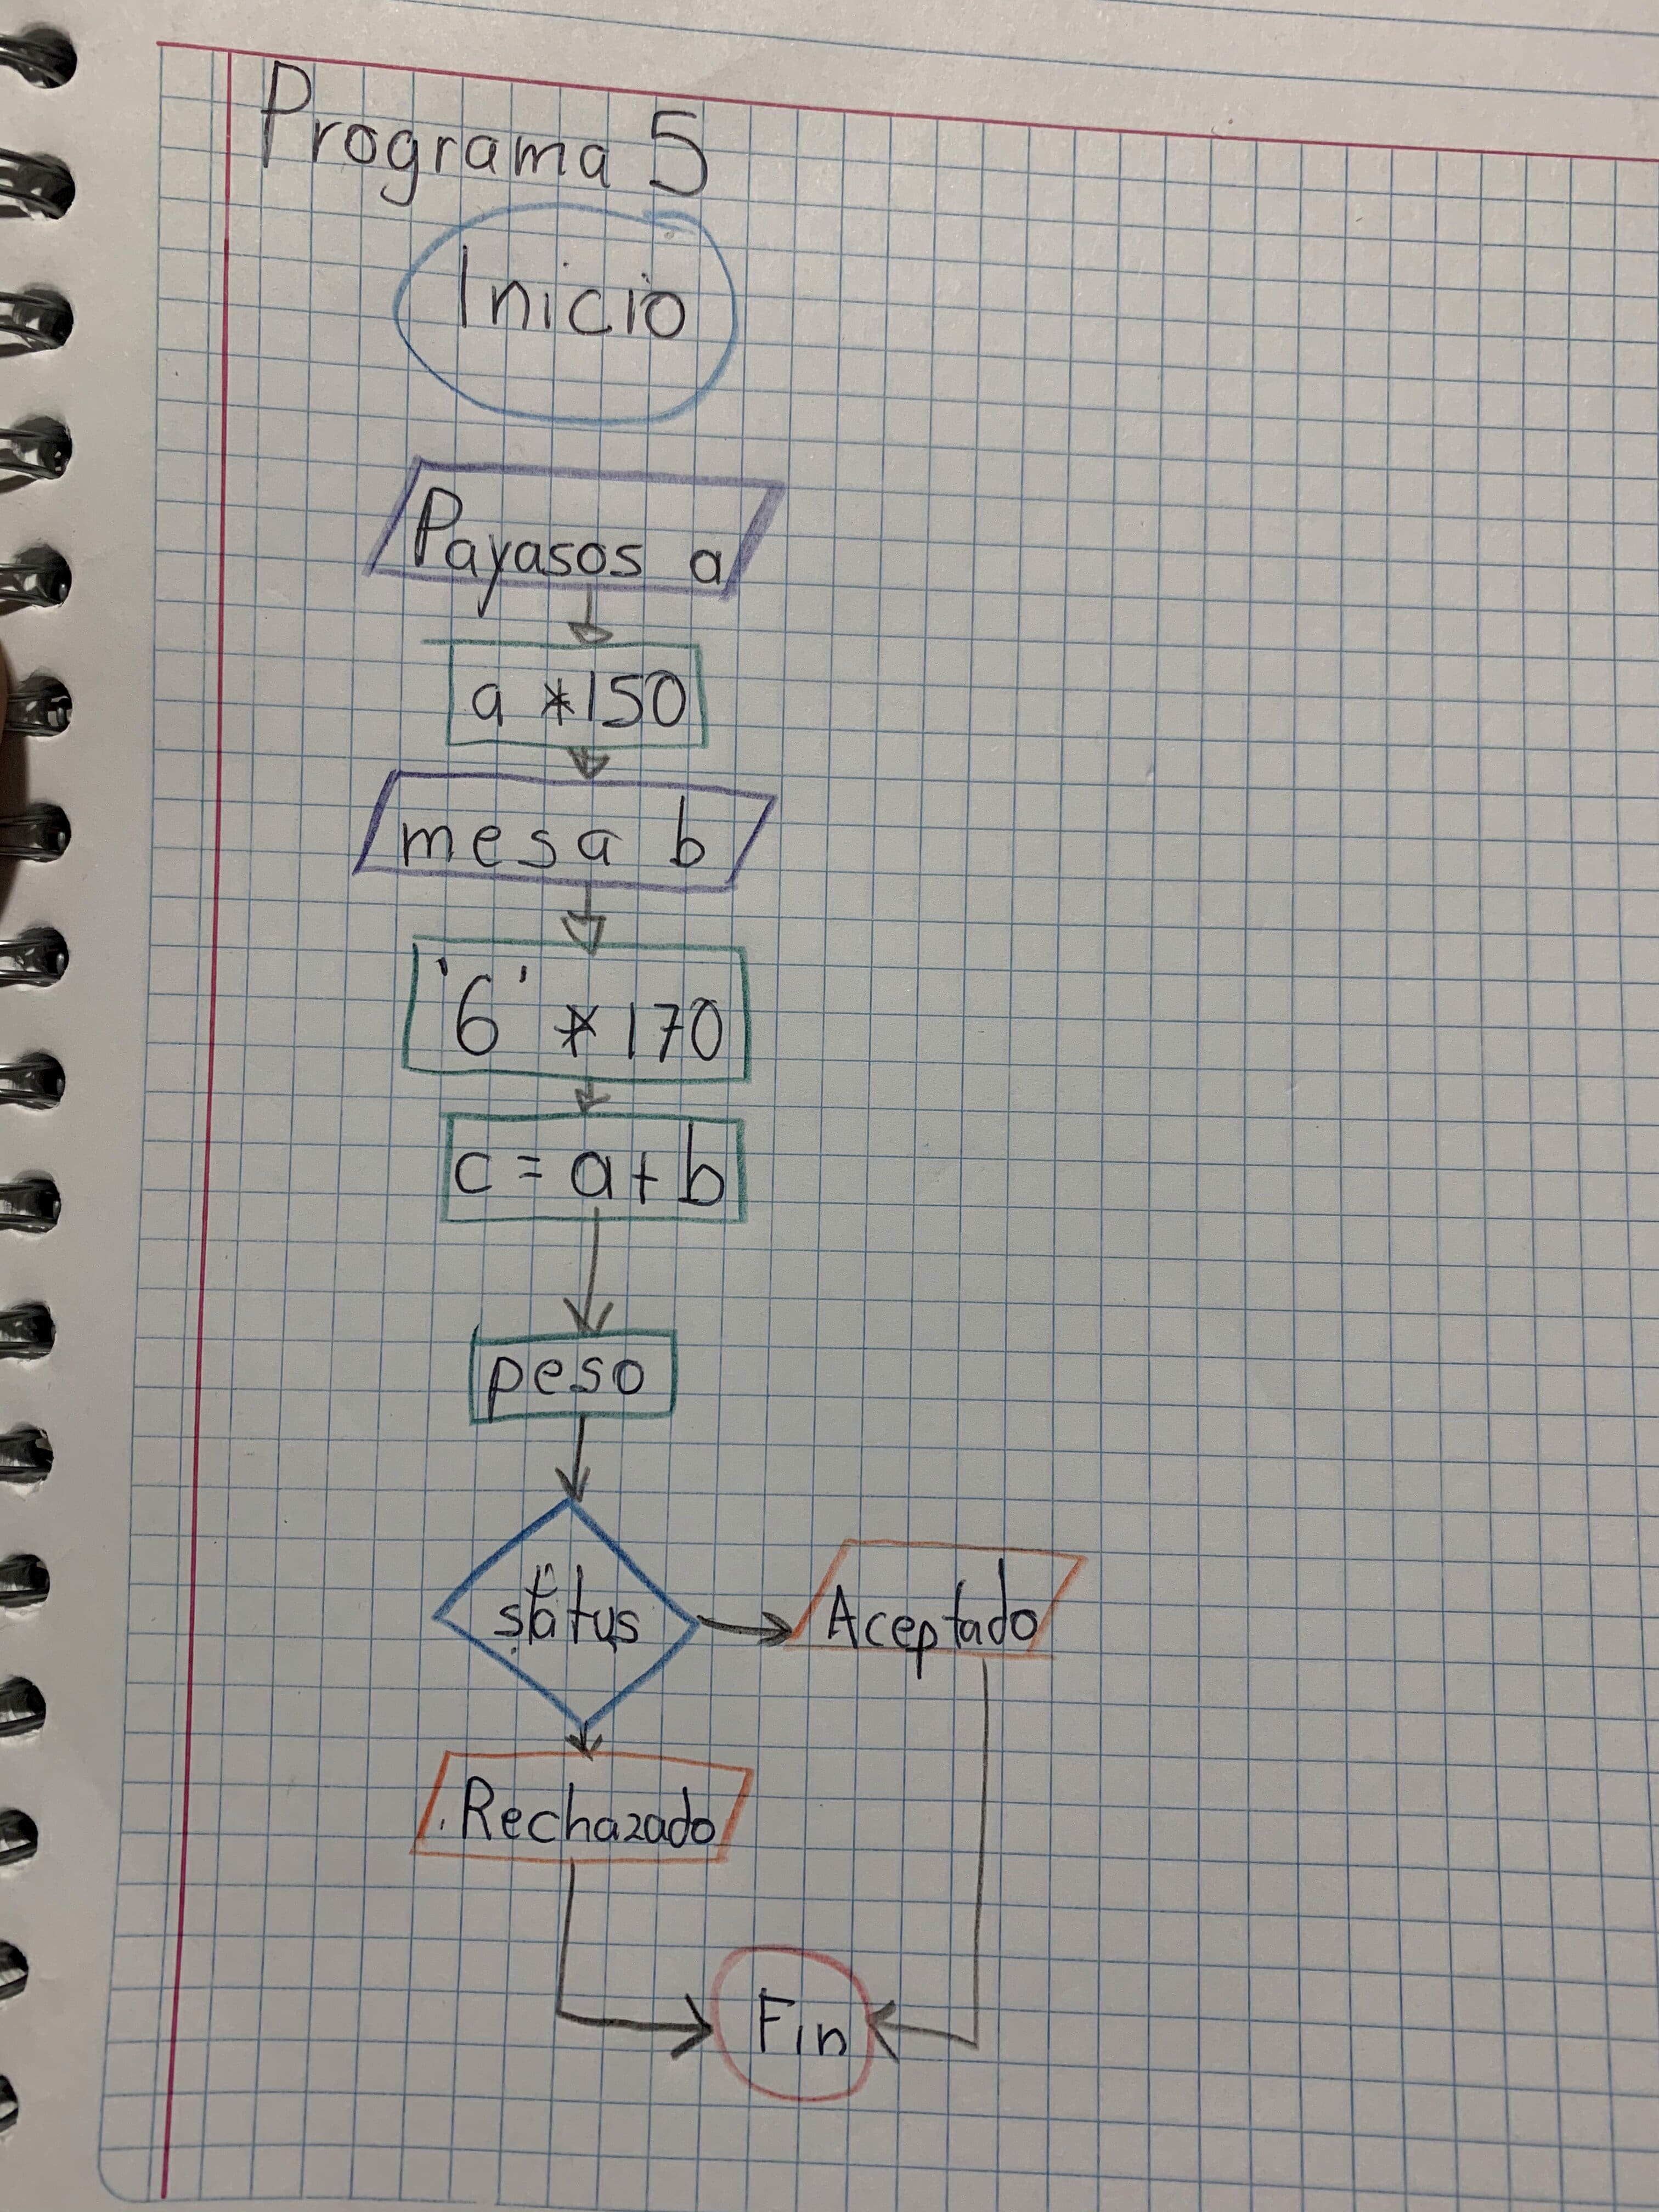 Programa 5
Inicio
Payasos a
a *150
mesa b
'6' * 170
c = a + b
peso
status
Aceptado
Rechazado
Fin